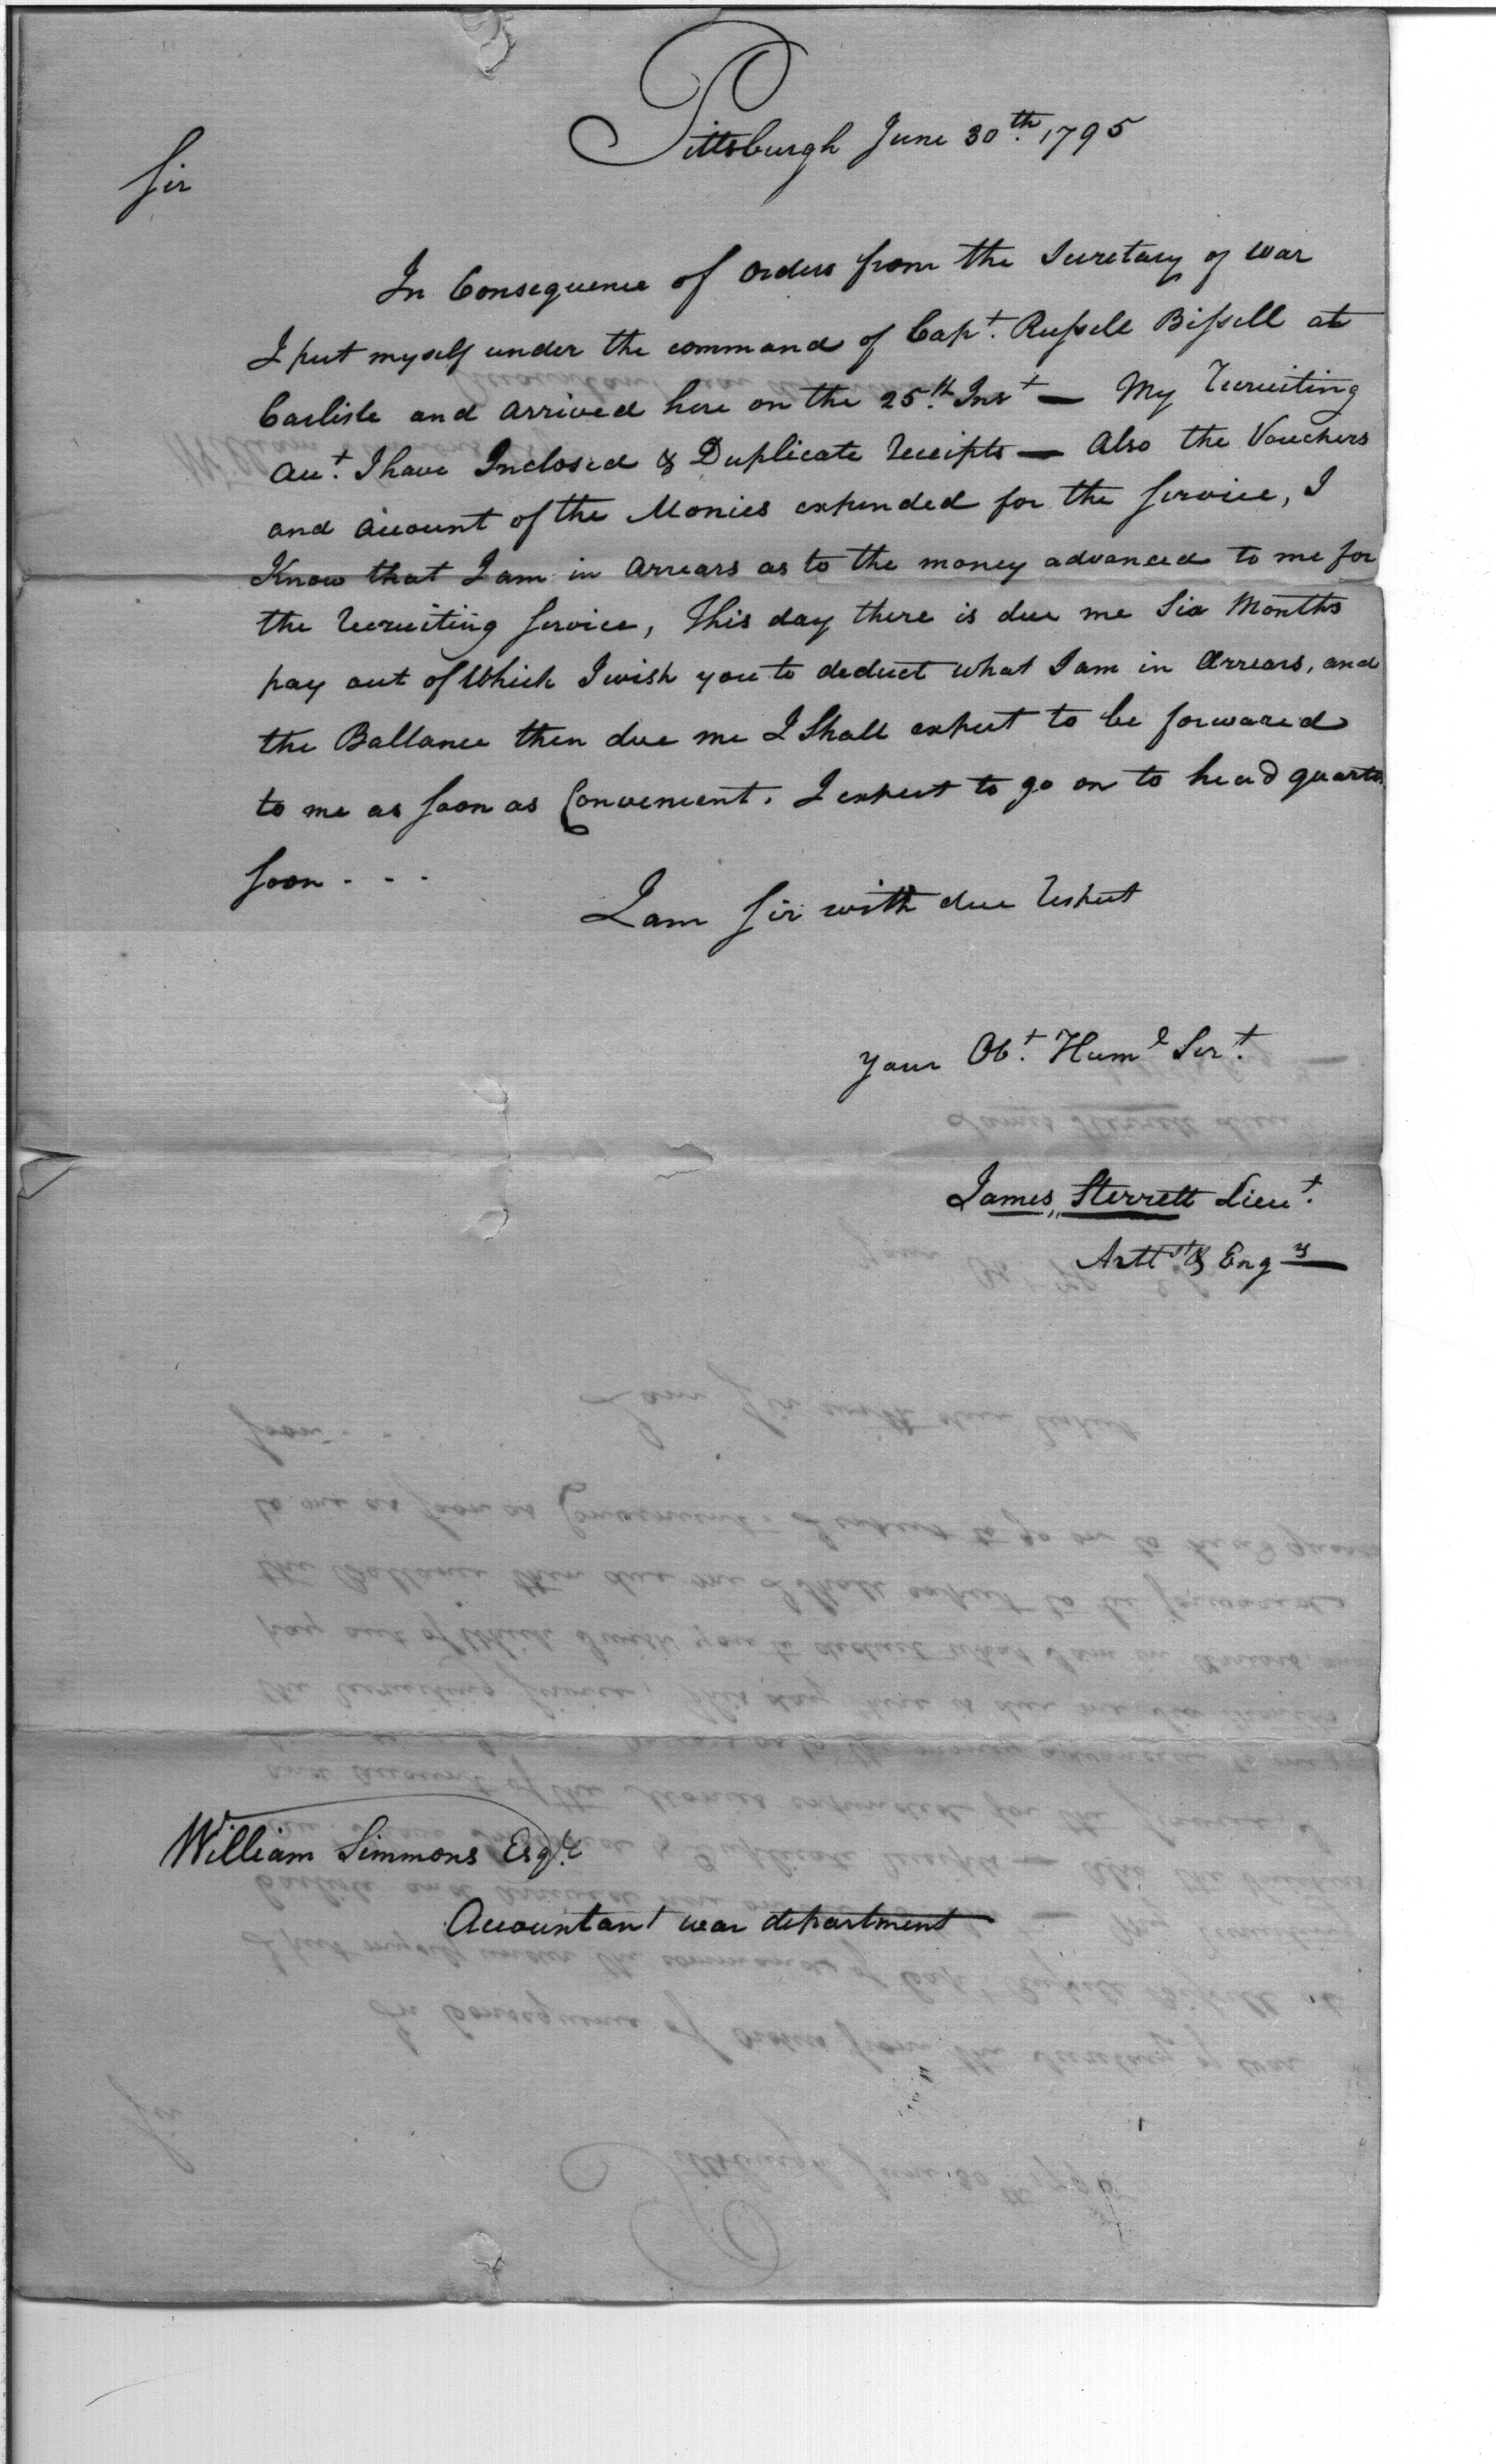 Pittsburgh June 30th. 1795
Sir
In Consequence of orders from the Secretary of War
I put myself under the command of Capt. Russell Bissell at
Carlisle and arrived here on the 25th. Inst — My recruiting
acct. I have Inclosed & Duplicate receipts — Also the Vouchers
and account of the Monies expended for the Service, I
Know that I am in arrears as to the money advanced to me for
the recruiting Service, This day there is due me Six Months
pay out of Which I wish you to deduct what I am in Arrears, and
the Ballance then due me I Shall expect to be forwared
to me as soon as Convenient. I expect to go on to head quarts.
soon - - -
I am Sir with due respect
your Obt. Huml Sert.
James Sterrett Lieut.
Artlst & Engrs
William Simmons Esqre.
Accountant war department